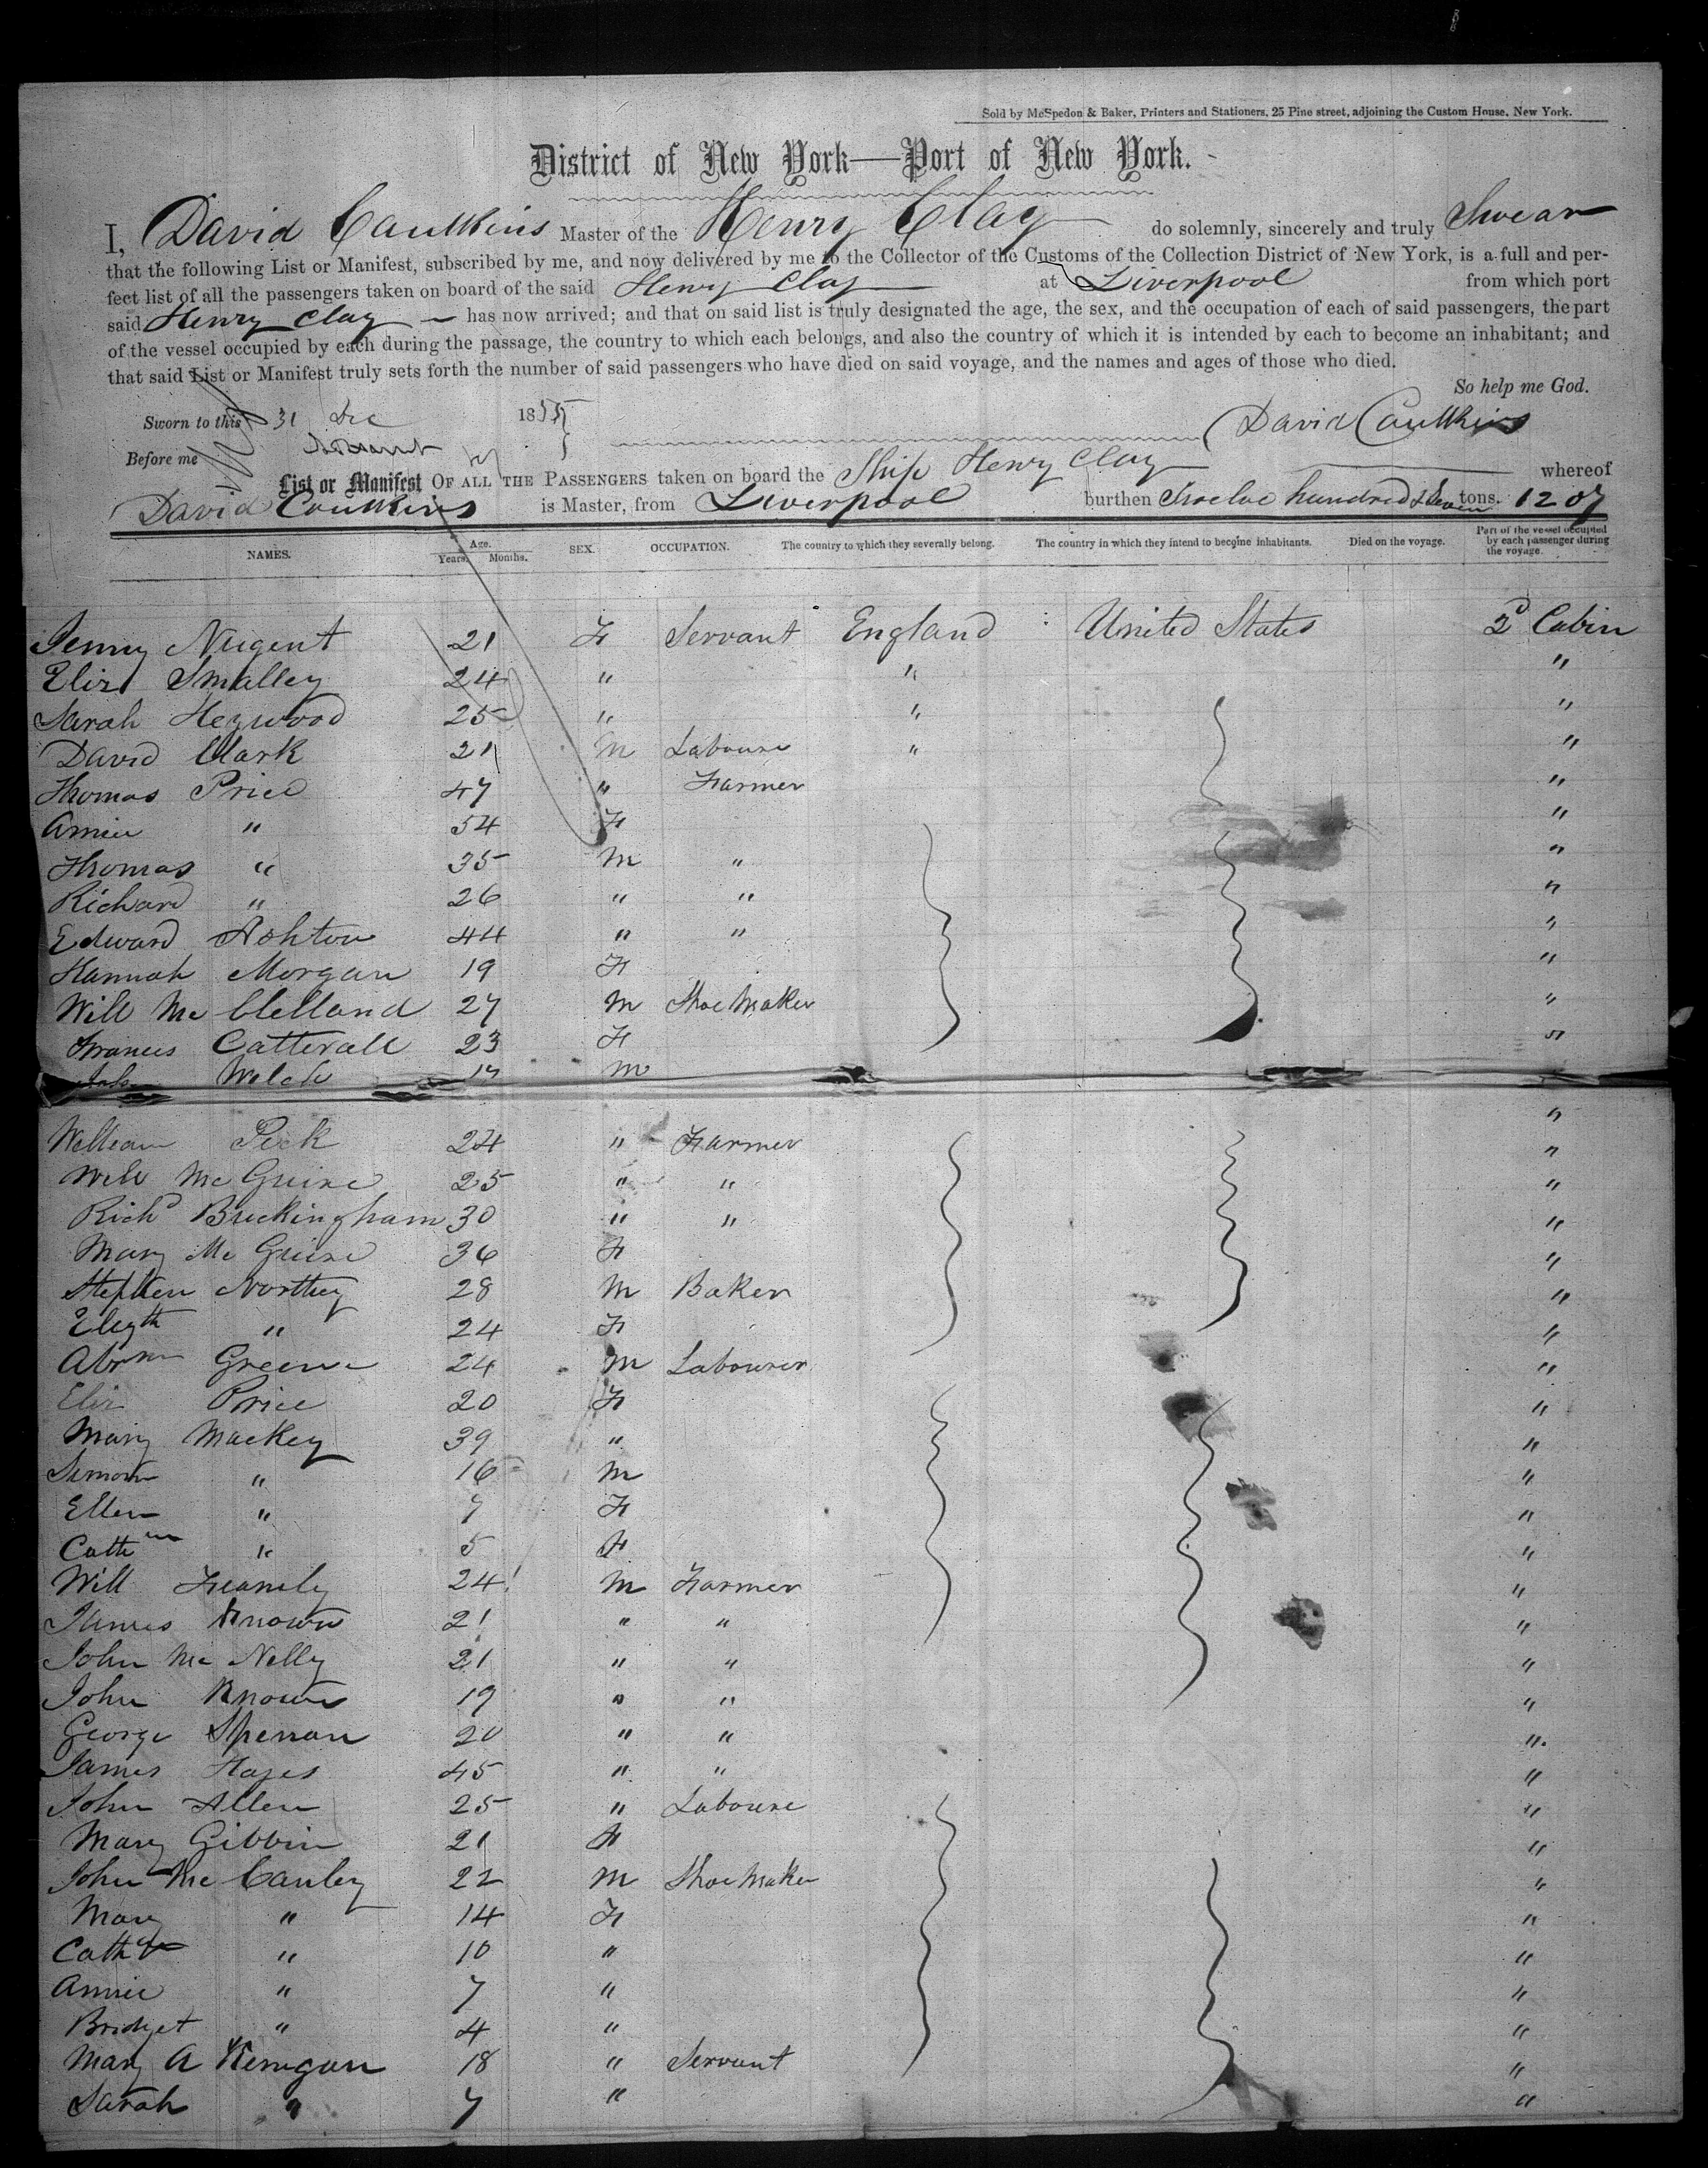 Sold by McSpedon & Baker, Printers and Stationers, 25 Pine street, adjoining the Custom House, New York.
District of New York—Port of New York.
I, David Caulkins Master of the Henry Clay do solemnly, sincerely and truly Swear
that the following List or Manifest, subscribed by me, and now delivered by me to the Collector of the Customs of the Collection District of New York, is a full and per-
fect list of all the passengers taken on board of the said Henry Clay at Liverpool from which port
said Henry Clay has now arrived; and that on said list is truly designated the age, the sex, and the occupation of each of said passengers, the part
of the vessel occupied by each during the passage, the country to which each belongs, and also the country of which it is intended by each to become an inhabitant; and
that said List or Manifest truly sets forth the number of said passengers who have died on said voyage, and the names and ages of those who died.
So help me God.
Sworn to this 31 Dec 1855
David Caulkins
Before me
List or Manifest OF ALL THE PASSENGERS taken on board the Ship Henry Clay whereof
David Caulkins is Master, from Liverpool burthen Twelve hundred & Seven tons. 1207
NAMES. Age. Years. Months. SEX. OCCUPATION. The country to which they severally belong. The country in which they intend to become inhabitants. Died on the voyage. Part of the vessel occupied by each passenger during the voyage.
Jenny Nugent 21 F Servant England United States 2d Cabin
Eliz Smalley 24 " " "
Sarah Heywood 25 " " "
David Clark 21 M Laboure " "
Thomas Price 47 " Farmer "
Annie " 54 F "
Thomas " 35 M " "
Richard " 26 " " "
Edward Ashton 44 " " "
Hannah Morgan 19 F "
Will Mc Clelland 27 M Shoe Maker "
Frances Catterall 23 F "
Welch M
William Peck 24 " Farmer "
Will Mc Guire 25 " " "
Richd Buckingham 30 " " "
Mary Mc Guire 36 F "
Stephen Northey 28 M Baker "
Elizth " 24 F "
Abrm Greene 24 M Labourer "
Eliz Price 20 F "
Mary Mackey 39 " "
Simon " 16 M "
Ellen " 7 F "
Cathne " 5 F "
Will 24 M Farmer "
James Known 21 " " "
John Mc Nelly 21 " " "
John Known 19 " " "
George 20 " " "
James Hayes 45 " " "
John Allen 25 " Laboure "
Mary Gibbin 21 F "
John Mc Canley 22 M Shoe Maker "
Mary " 14 F "
Cath " 10 " "
Annie " 7 " "
Bridget " 4 " "
Mary A Kerrigan 18 " Servant "
Sarah " 7 " "